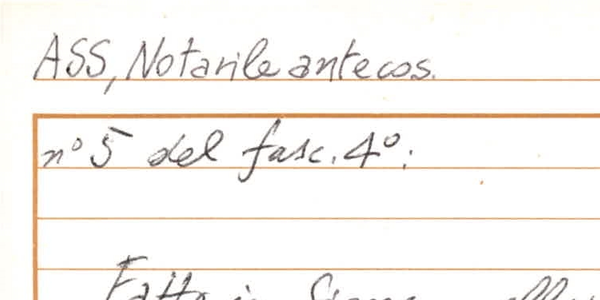 ASS, Notarile antecos.
n° 5 del fasc. 4°:
Fatto in Siena